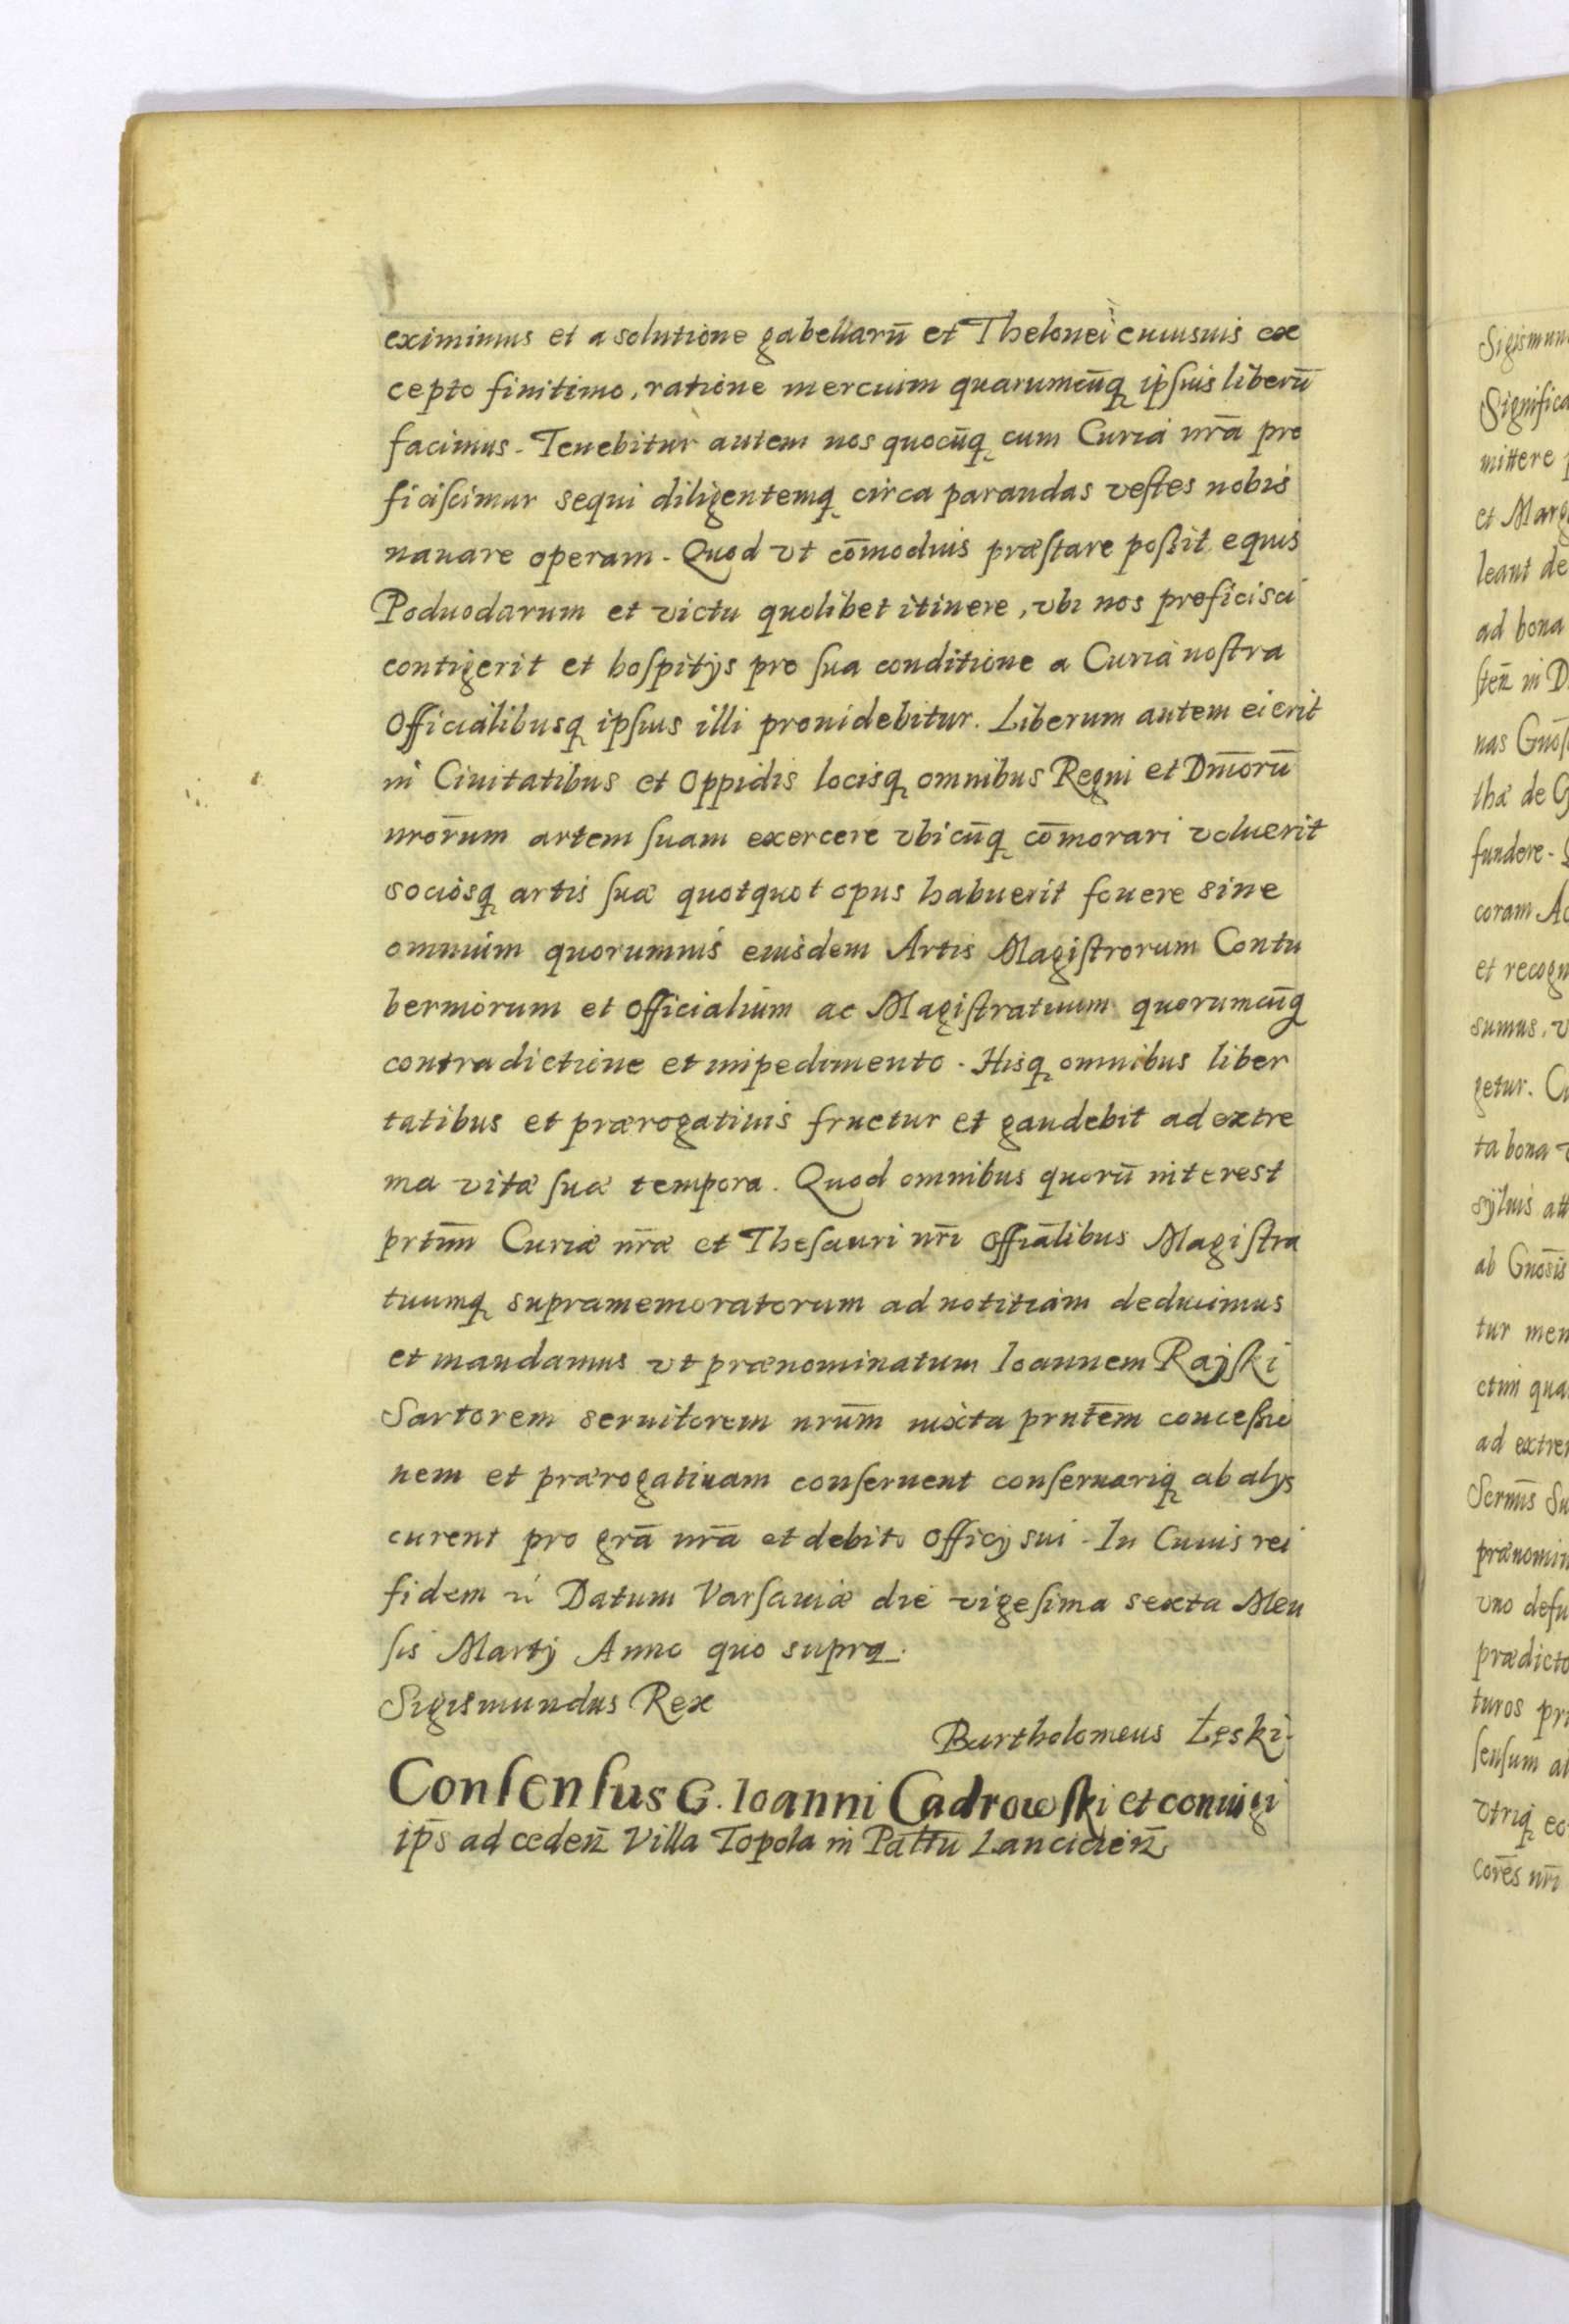 eximimus et a solutione gabellarū et Thelonei cuiusuis ex
cepto finitimo, ratione mercium quarumcūq ipsius liberū
facimus. Tenebitur autem nos quocūq cum Curia nrā pro
ficiscimur sequi diligentemq circa parandas vestes nobis
nauare operam. Quod vt cōmodius præstare possit equis
Poduodarum et victu quolibet itinere, vbi nos proficisci
contigerit et hospitÿs pro sua conditione a Curia nostra
Officialibusq ipsius illi prouidebitur. Liberum autem ei erit
in Ciuitatibus et Oppidis locisq omnibus Regni et Dn̄iorū
nrōrum artem suam exercere vbicūq cōmorari voluerit
sociosq artis suæ quotquot opus habuerit fouere sine
omnium quorumuis eiusdem Artis Magistrorum Contu
berniorum et Officialium ac Magistratuum quorumcūq
contradictione et impedimento. Hisq omnibus liber
tatibus et prærogatiuis fruetur et gaudebit ad extre
ma vitæ suæ tempora. Quod omnibus quorū interest
prtīm Curiæ nrǣ et Thesauri nrī Offiālibus Magistra
tuumq supramemoratorum ad notitiam deducimus
et mandamus vt prænominatum Ioannem Raÿski
Sartorem seruitorem nrūm iuxta prntēm concessio
nem et prærogatiuam conseruent conseruariq ab alÿs
curent pro grā nrā et debito Officÿ sui. In Cuius rei
fidem Datum Varsauiæ die vigesima sexta Men
sis Martÿ Anno quo supra.
Sigismundus Rex
Bartholomeus Łęski.
Consensus G. Ioanni Cadrowski et coniugi
ip̄s ad ceden̄ Villa Topola in Pāttu Lancicien̄
Sigismun
Significa
mittere
et Marg
leant de
ad bona
steñ in D
nas
thæ de G
fundere.
coram Ac
et recogn
sumus, v
getur. Cu
ta bona
sÿluis att
ab Gnōsis
tur men
ctim qua
ad extrem
Sermīs Su
prænomin
vno defu
prædicto
turos pri
sensum al
vtriq eo
corēs nrī